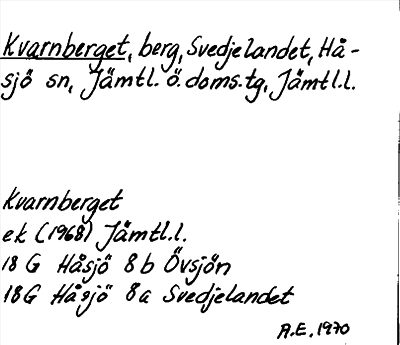 Kvarnberget, berg, Svedjelandet, Hå-
sjö sn, Jämtl. ö. doms.tg, Jämtl.l.
Kvarnberget
ek (1968) Jämtl.l.
18 G Håsjö 8 b Övsjön
18G Håsjö 8a Svedjelandet
A.E. 1970